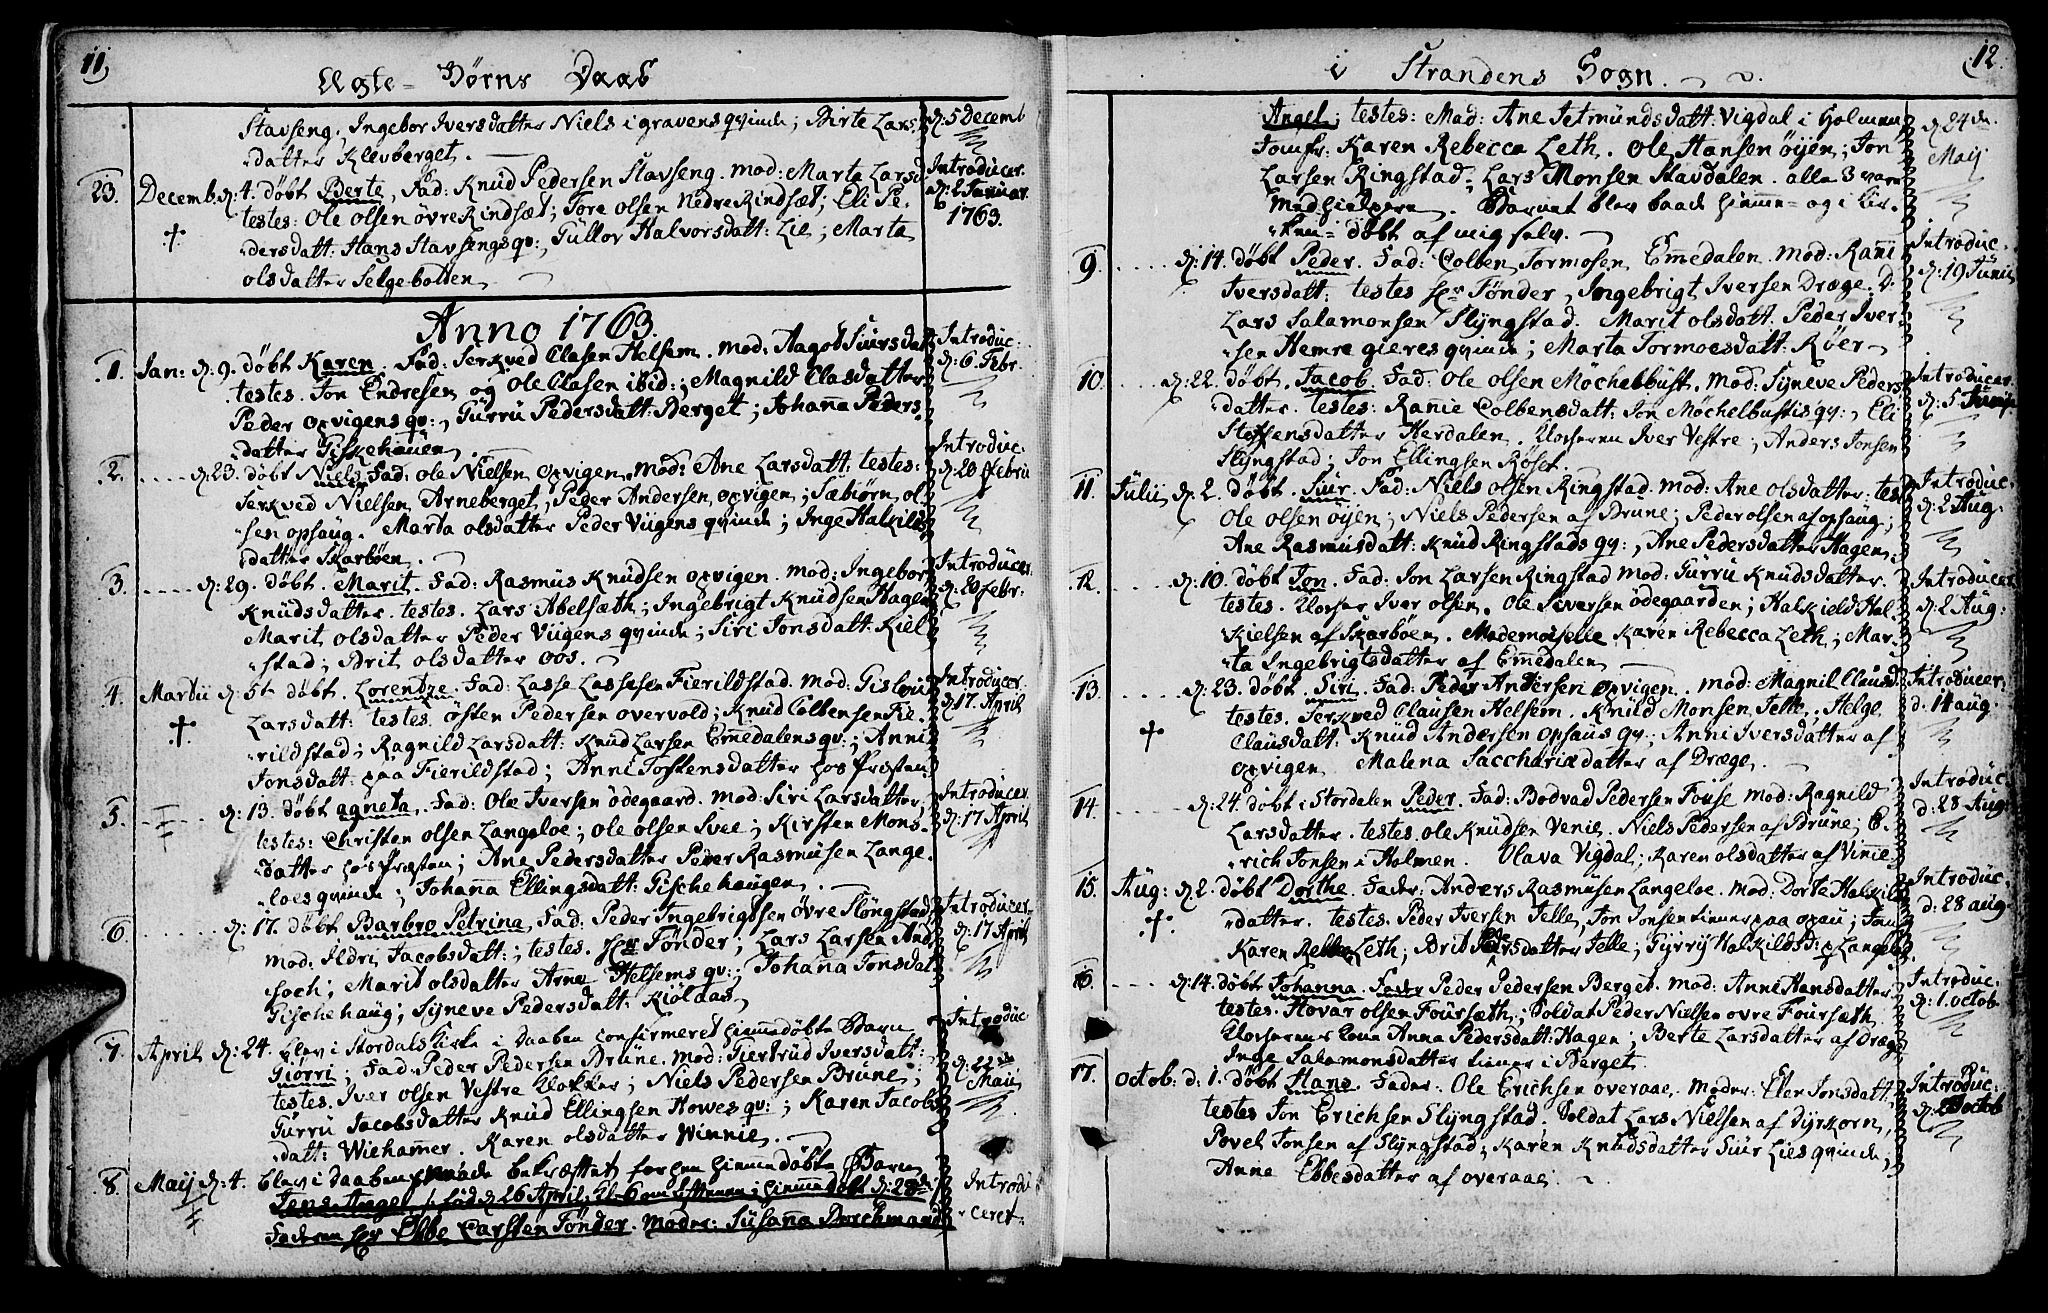 11)
Ægte-Børns Daab
Stavseng. Ingebor Iversdatter Niels i gravens qvinde; Birte Lars-
datter Klevberget.
d: 5 Decemb
23. Decemb. d: 4. døbt Berte, Fad: Knud Pedersen Stavseng. mod: Marta Larsd
testes: Ole olsen øvre Rindsæt; Tore olsen Nedre Rindsæt; Eli Pe-
dersdatt: Hans Stavsengs qv:, Gullov Halvorsdatt: Lie; Marta
olsdatter Selgebotten
Introducer.
d: 2 Januar.
1763.
Anno 1763.
1. Jan: d: 9. døbt Karen. Fad: Serkved Clasen Helsem. mod: Aagot Siursdatt
testes. Jon Endresen og Ole Clasen ibid:; Magnild Clasdatter
Peder opvigens qv:, Gurru Pedersdatt: Berget; Johanna Peders-
datter Giskehauen
Introduc.
d: 6. Febr.
2. .... d: 23. døbt Niels. Fad: ole Nielsen opvigen. mod: Ane Larsdatt: testes:
Serkved Nielsen Arneberget, Peder Andersen opvigen; Sæbiørn ol-
sen opsaug. Marta olsdatter Peder Viigens qvinde; Inge Halkilds
datter Skarbøen.
Introduc:
d: 20 febru
3. ..... d: 29. døbt. Marit. Fad: Rasmus Knudsen opvigen. mod: Ingebor
Knudsdatter. testes. Lars Abelsæth; Ingebrigt Knudsen Hagen
Marit olsdatter Peder Viigens qvinde; Siri Jonsdatt: Kiel-
stad; Brit olsdatter oos.
Introducer.
d: 20 febr:
4. Martii d: 5te døbt. Lorentze. Fad: Lasse Lassesen Fierildstad. mod: Gislou
Larsdatt: testes. østen Pedersen overvold; Knud Colbensen Fie-
rildstad; Ragnild Larsdatt: Knud Larsen Emedalens qv:; Anni
Jonsdatt: paa Fierildstad; Anni Tostensdatter hos Præsten.
Introducer.
d: 17. April
5. ..... d: 13. døbt agneta. Fad: Ole Iversen ødegaard. mod: Siri Larsdatter
testes: Christen olsen Langeloe; ole olsen Svee; Kirsten Mons-
datter hos Præsten; Ane Pedersdatter Peder Rasmusen Lange-
loes qvinde; Johanna Ellingsdatt: Gischehaugen.
Introducer
d: 17 April
6. ....... d: 17. døbt Barbro Petrina, Fad: Peder Ingebrigtsen øvre Sløngstad
mod. Ildri Jacobsdatt:; testes. Hr Tønder; Lars Larsen And-
soch; Marit olsdatter Arne Helsems qv:; Johana Jonsdat
Gischehaug; Syneve Pedersdatt: Kiøldas
Introducer
d: 17 April
7. April d: 24. blev i Stordals Kirke i Daaben confirmeret hiemmedøbte Barn
Giørri; Fad. Peder Pedersen Brune. mod: Giertrud Iversdatt:
testes. Iver olsen Vestre Klokker; Niels Pedersen Brune;
Gurru Jacobsdatter Knud Ellingsen Howes qv:; Karen Jacobs
datt: Wiehammer. Karen olsdatter Winnie.
Introduc
d: 22de
Maii
8. Maij d: 4. blev i Daabens naade bekræftet for hen hiemmedøbte Barn
Jens Angel, født d 26 April, Kl 6 om Aftenen; hiemmedøbt d: 28de
Faderen Hr Ebbe Carsten Tønder. moder: Susanna Borchmand
Introdu
ceret
12.
i Strandens Sogn.
Angel; testes: Mad: Ane Jetmundsdatt: Vigdal i Holmen
Jomfr: Karen Rebecca Leth. Ole Hansen øyen; Jon
Larsen Ringstad; Lars Monsen Stavdalen. alle 3 vare
Medhielpere. Barnet blev baade hiemme- og i Kir-
ken- døbt af mig selv.
d 24de
Maij
9. ..... d: 14. døbt Peder. Fad: Colben Tormosen Emedalen. mod: Rani
Iversdatt: testes Hr Tønder, Ingebrigt Iversen Dræge. D:
Lars Salamonsen Slyngstad. Marit olsdatt: Peder Iver-
sen Hemre gieres qvinde; Marta Tormoesdatt: Røer
Introduc.
d: 19 Junii
10. .... d: 22. døbt. Jacob. Fad: Ole olsen Møchelbust. mod: Syneve Peders
datter. testes: Rannie Colbensdatt: Jon Møchelbustis qv:, Eli
Steffensdatter Herdalen. Klocheren Iver Vestre; Anders Jonsen
Slyngstad; Jon Ellingsen Røset.
Introducer.
d: 5 Junij
11. Julii d: 2. døbt. Siur. Fad: Niels olsen Ringstad. mod: Ane olsdatter: tes
Ole olsen øyen; Niels Pedersen af Brune; Peder olsen af opsaug;
Ane Rasmusdatt: Knud Ringstads qv:, Ane Pedersdatter Hagen.
Introduc.
d: 2 Aug:
12. .... d: 10. døbt Jon. Fad: Jon Larsen Ringstad mod: Gurru Knudsdatter.
testes. Klocher Iver olsen. Ole Siversen ødegaarden; Halkield Hal-
kielsen af Skarbøen. Mademoiselle Karen Rebecca Leth; Mar-
ta Ingebrigtsdatter af Emedalen
Introducer
d: 2 Aug:
13. ..... d: 23. døbt. Siri. Fad: Peder Andersen opvigen. mod: Magnil Clausd
testes. Serkved Clausen Helsem. Knud Monsen Jelle; Helge
Clausdatt: Knud Andersen opsaus qv:; Anni Iversdatter af
opvigen Malena Sacchariædatter af Dræge.
Introducer.
d. 14 aug.
14. .... d: 24. døbt i Stordalen Peder. Fad: Bodvad Pedersen Fouse mod: Ragnild
Larsdatter. testes ole Knudsen Venie. Niels Pedersen af Brune; E-
rich Jonsen i Holmen. Olava Vigdal; Karen olsdatter af Vinnie
Introduc
d: 28 Aug:
15. Aug: d 2. døbt Dorthe. Fader: Anders Rasmusen Langeloe. mod: Dorte Halkilds
datter. testes. Peder Iversen Jelle, Jon Jonsen tiener paa opau; Jom
Karen Rebbe Leth; Brit Pedersdatter Jelle; Gyrry Halkildsd: p Langeloe
Introduc.
d: 28 aug
16. .... d: 14. døbt Johanna. Fader Peder Pedersen Berget. mod: Anne Hansdatter.
testes. Hovar olsen Foursæth; Soldat Peder Nielsen øvre Foursæth
Klocherens Kone Anna Pedersdatt: Hagen; Berte Larsdatter af Dræge
Inge Salamonsdatter tiener i Berget.
Introduc.
d: 1. octob
17. octob: d: 1. døbt Hans. Fader: Ole Erichsen overaae. Moder: Elen Jonsdatt:
testes Jon Erichsen Slyngstad. Soldat Lars Nielsen af Dyrkorn,
Povel Jonsen af Slyngstad, Karen Knudsdatter Siur Lies qvinde;
Anne Ebbesdatter af overaae.
Introduc: